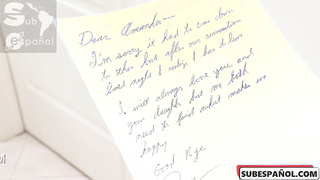 Sub
Español
Dear Amanda
I'm sorry it had to come down
to this but after our conversation
last night I realize I have to leave
I will always love you and
your daughter but we both
need to find what makes us
happy
Good Bye
SUBESPAÑOL.COM